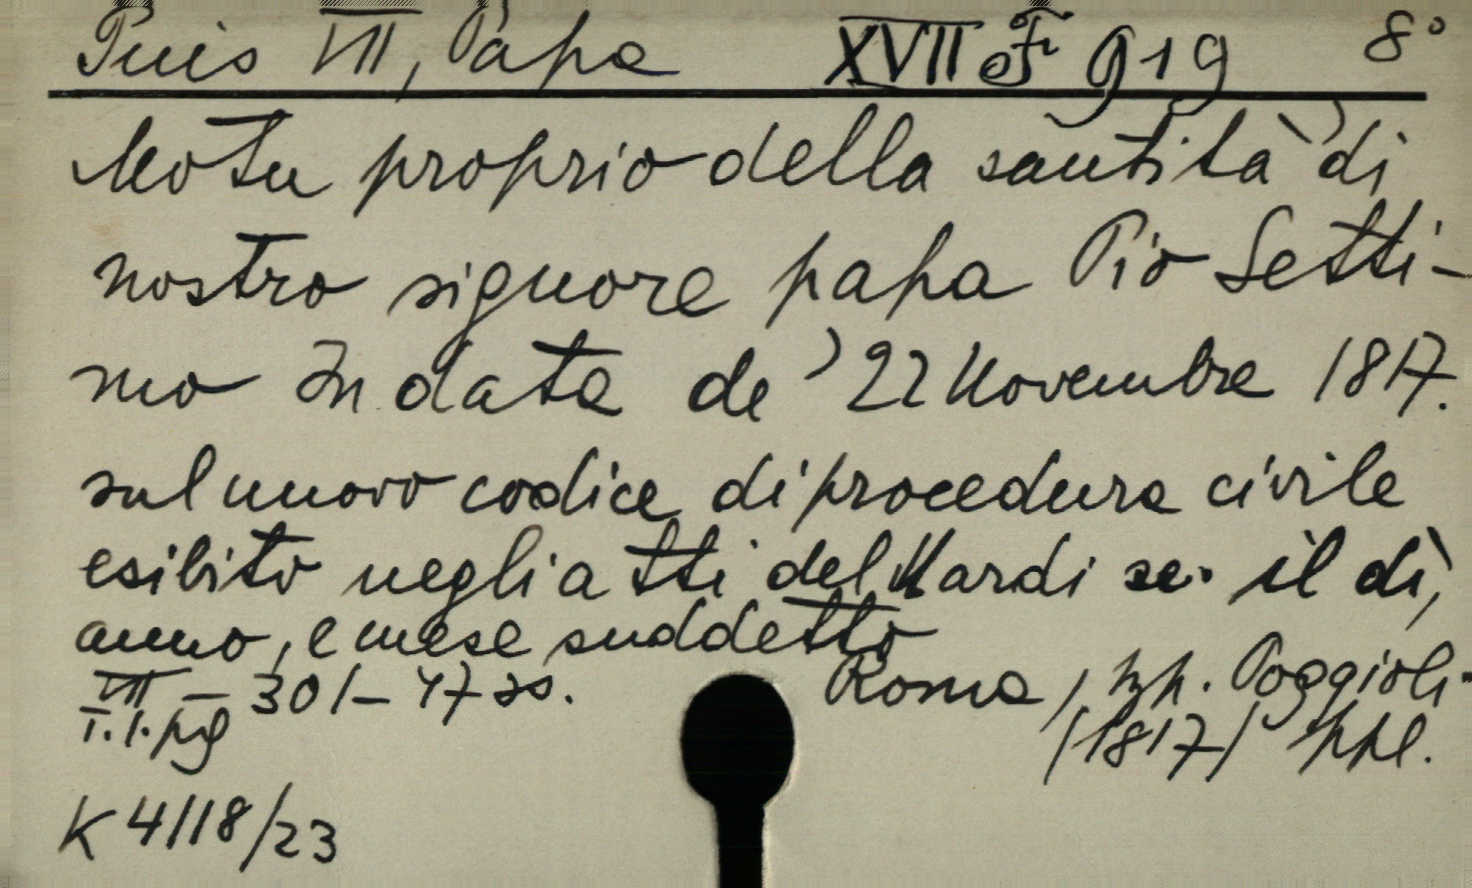 Pius VII, Papa XVII F 919 8°
Motu proprio della santità di
nostro signore papa Pio Setti-
mo In data de' 22 Novembre 1817.
sul nuovo codice di procedura civile
esibito negli atti del Nardi se. il dì,
anno, e mese suddetto
VII – 301 – 47
Roma, typ. Poggioli
/1817/ ppl.
K 4118/23